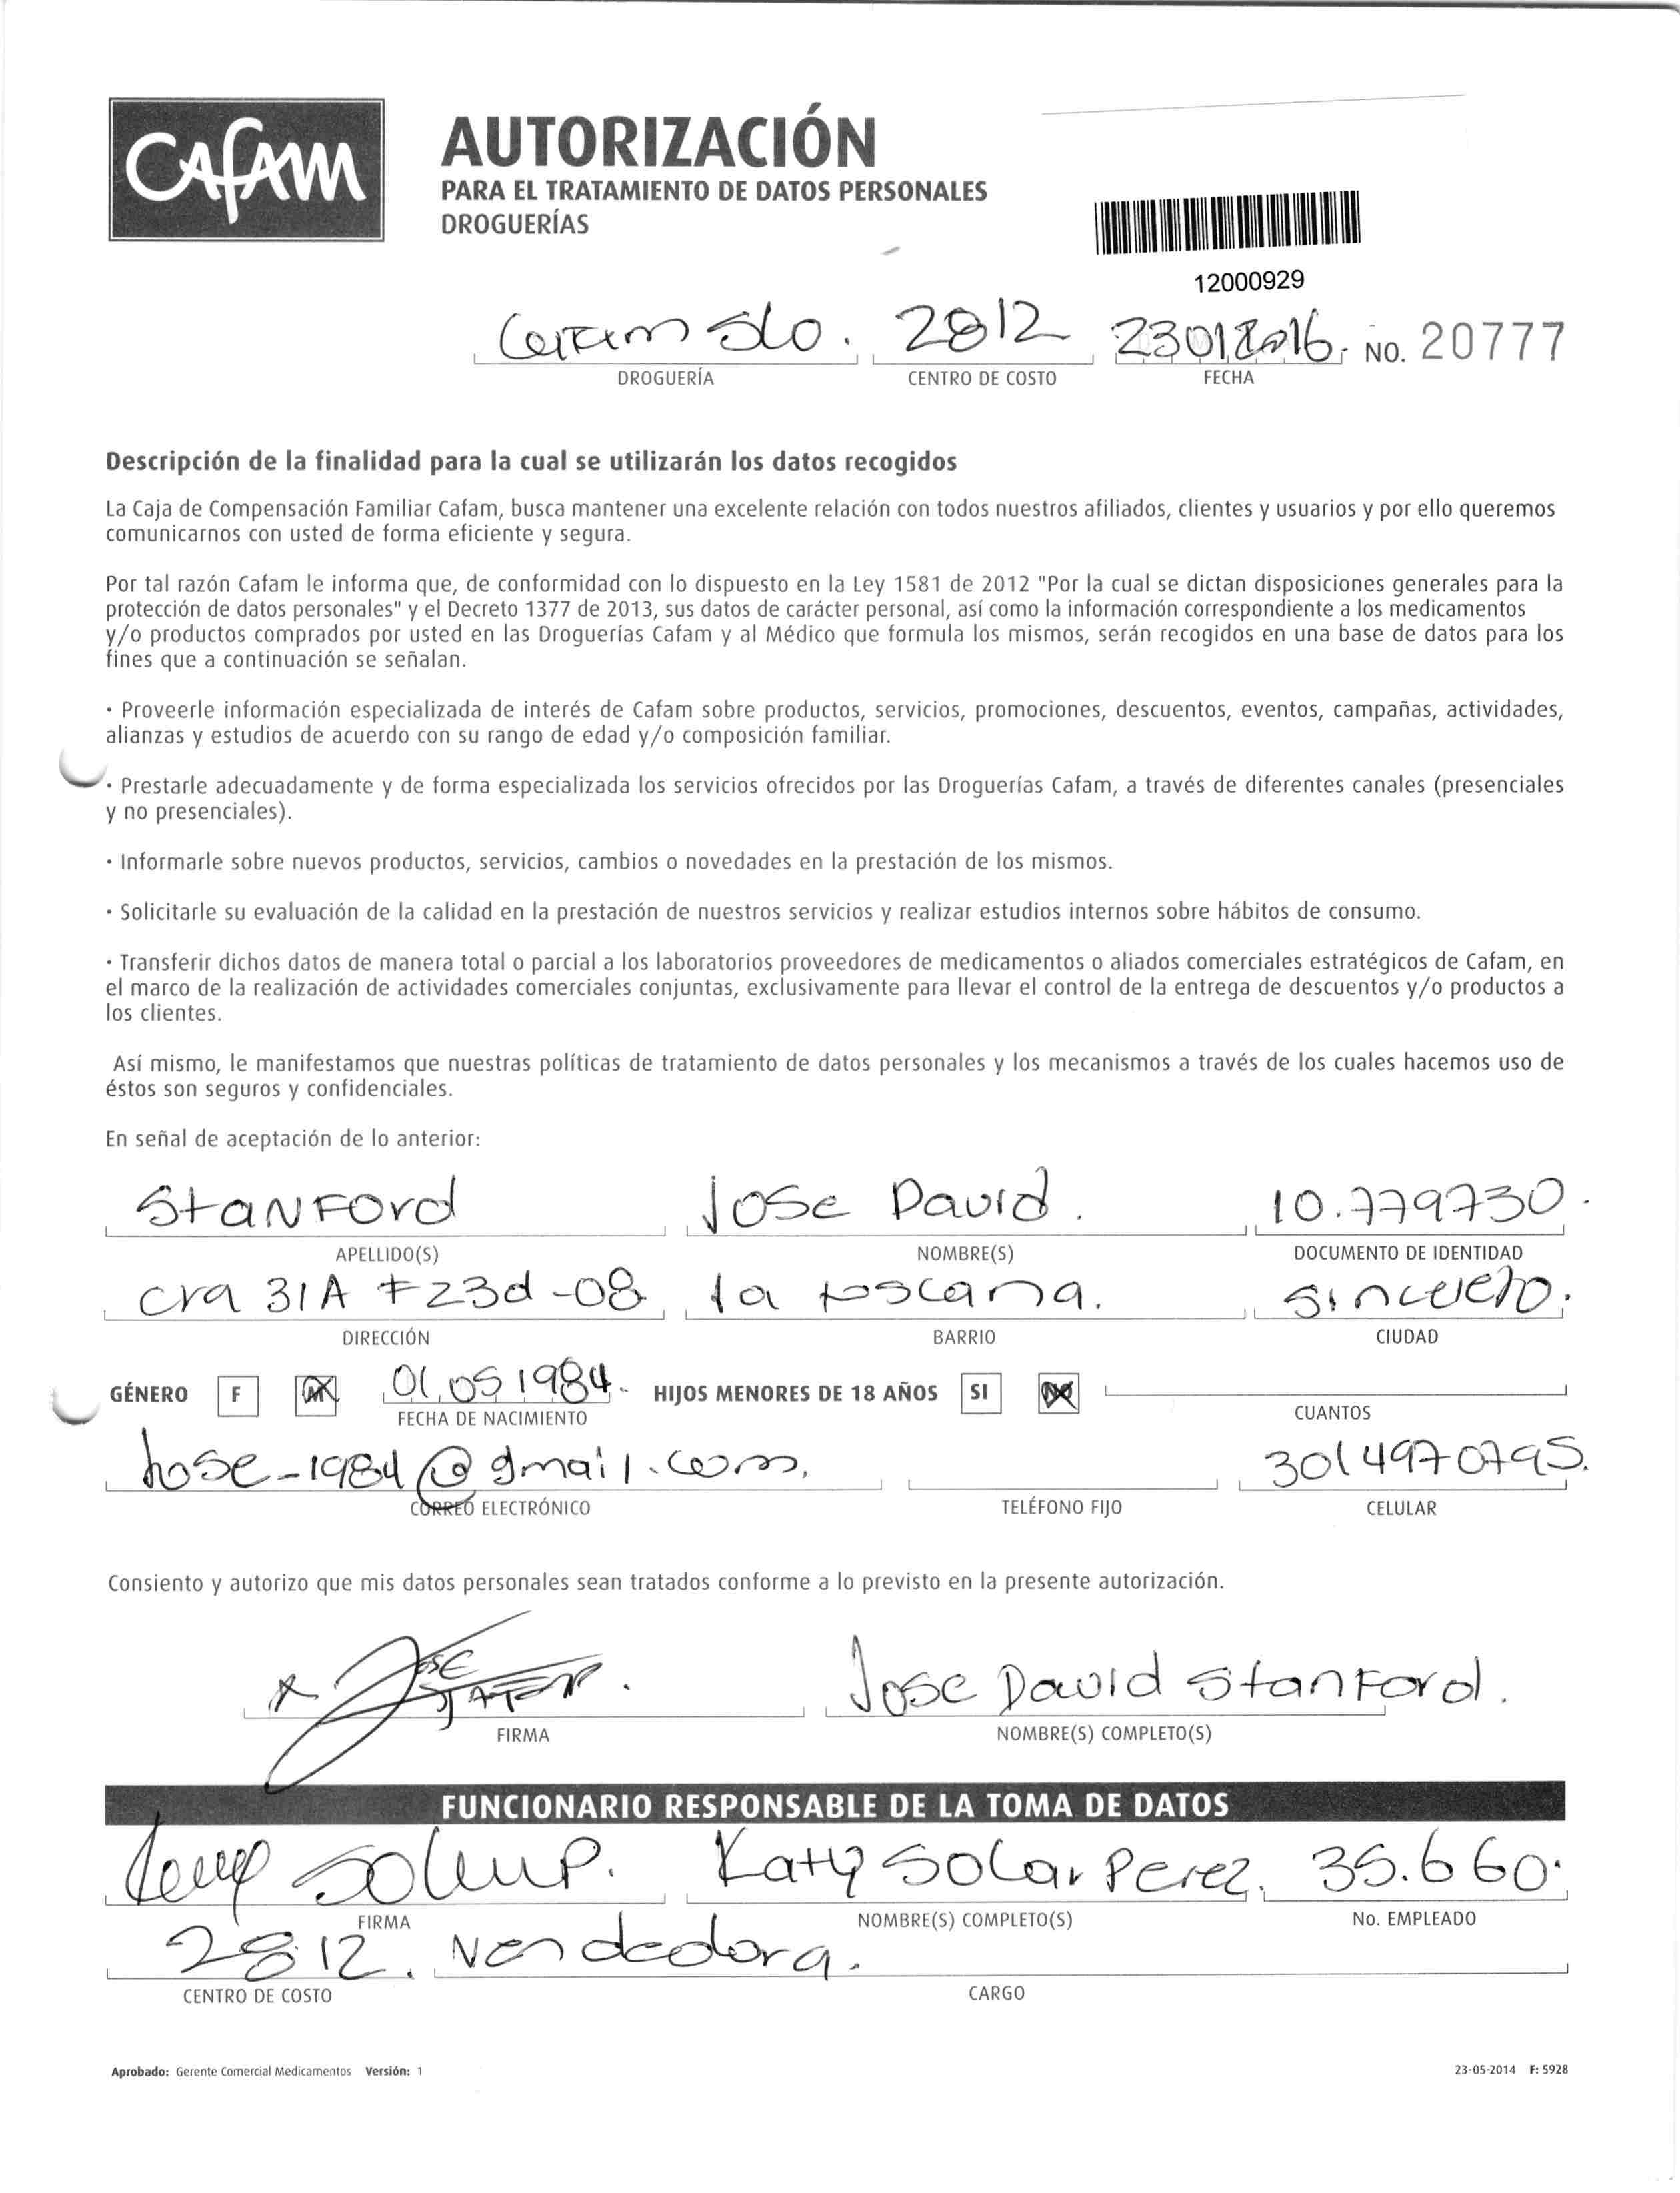 CAFAM
AUTORIZACIÓN
PARA EL TRATAMIENTO DE DATOS PERSONALES
DROGUERÍAS
12000929
Slo. 2812 23012016. NO. 20777
DROGUERÍA CENTRO DE COSTO FECHA
Descripción de la finalidad para la cual se utilizarán los datos recogidos
La Caja de Compensación Familiar Cafam, busca mantener una excelente relación con todos nuestros afiliados, clientes y usuarios y por ello queremos
comunicarnos con usted de forma eficiente y segura.
Por tal razón Cafam le informa que, de conformidad con lo dispuesto en la Ley 1581 de 2012 "Por la cual se dictan disposiciones generales para la
protección de datos personales" y el Decreto 1377 de 2013, sus datos de carácter personal, así como la información correspondiente a los medicamentos
y/o productos comprados por usted en las Droguerías Cafam y al Médico que formula los mismos, serán recogidos en una base de datos para los
fines que a continuación se señalan.
· Proveerle información especializada de interés de Cafam sobre productos, servicios, promociones, descuentos, eventos, campañas, actividades,
alianzas y estudios de acuerdo con su rango de edad y/o composición familiar.
· Prestarle adecuadamente y de forma especializada los servicios ofrecidos por las Droguerías Cafam, a través de diferentes canales (presenciales
y no presenciales).
· Informarle sobre nuevos productos, servicios, cambios o novedades en la prestación de los mismos.
· Solicitarle su evaluación de la calidad en la prestación de nuestros servicios y realizar estudios internos sobre hábitos de consumo.
· Transferir dichos datos de manera total o parcial a los laboratorios proveedores de medicamentos o aliados comerciales estratégicos de Cafam, en
el marco de la realización de actividades comerciales conjuntas, exclusivamente para llevar el control de la entrega de descuentos y/o productos a
los clientes.
Así mismo, le manifestamos que nuestras políticas de tratamiento de datos personales y los mecanismos a través de los cuales hacemos uso de
éstos son seguros y confidenciales.
En señal de aceptación de lo anterior:
Stanford Jose David. 10.779730.
APELLIDO(S) NOMBRE(S) DOCUMENTO DE IDENTIDAD
cra 31A #23d-08 la toscana. sincelejo.
DIRECCIÓN BARRIO CIUDAD
GÉNERO F M 01.05 1984. HIJOS MENORES DE 18 AÑOS SI NO
FECHA DE NACIMIENTO CUANTOS
hose-1984@gmail.com. 3014970795.
CORREO ELECTRÓNICO TELÉFONO FIJO CELULAR
Consiento y autorizo que mis datos personales sean tratados conforme a lo previsto en la presente autorización.
x Jose Jose David Stanford.
FIRMA NOMBRE(S) COMPLETO(S)
FUNCIONARIO RESPONSABLE DE LA TOMA DE DATOS
Katy Solar Perez. 35.660.
FIRMA NOMBRE(S) COMPLETO(S) No. EMPLEADO
2812. Vendedora.
CENTRO DE COSTO CARGO
Aprobado: Gerente Comercial Medicamentos Versión: 1 23-05-2014 F: 5928